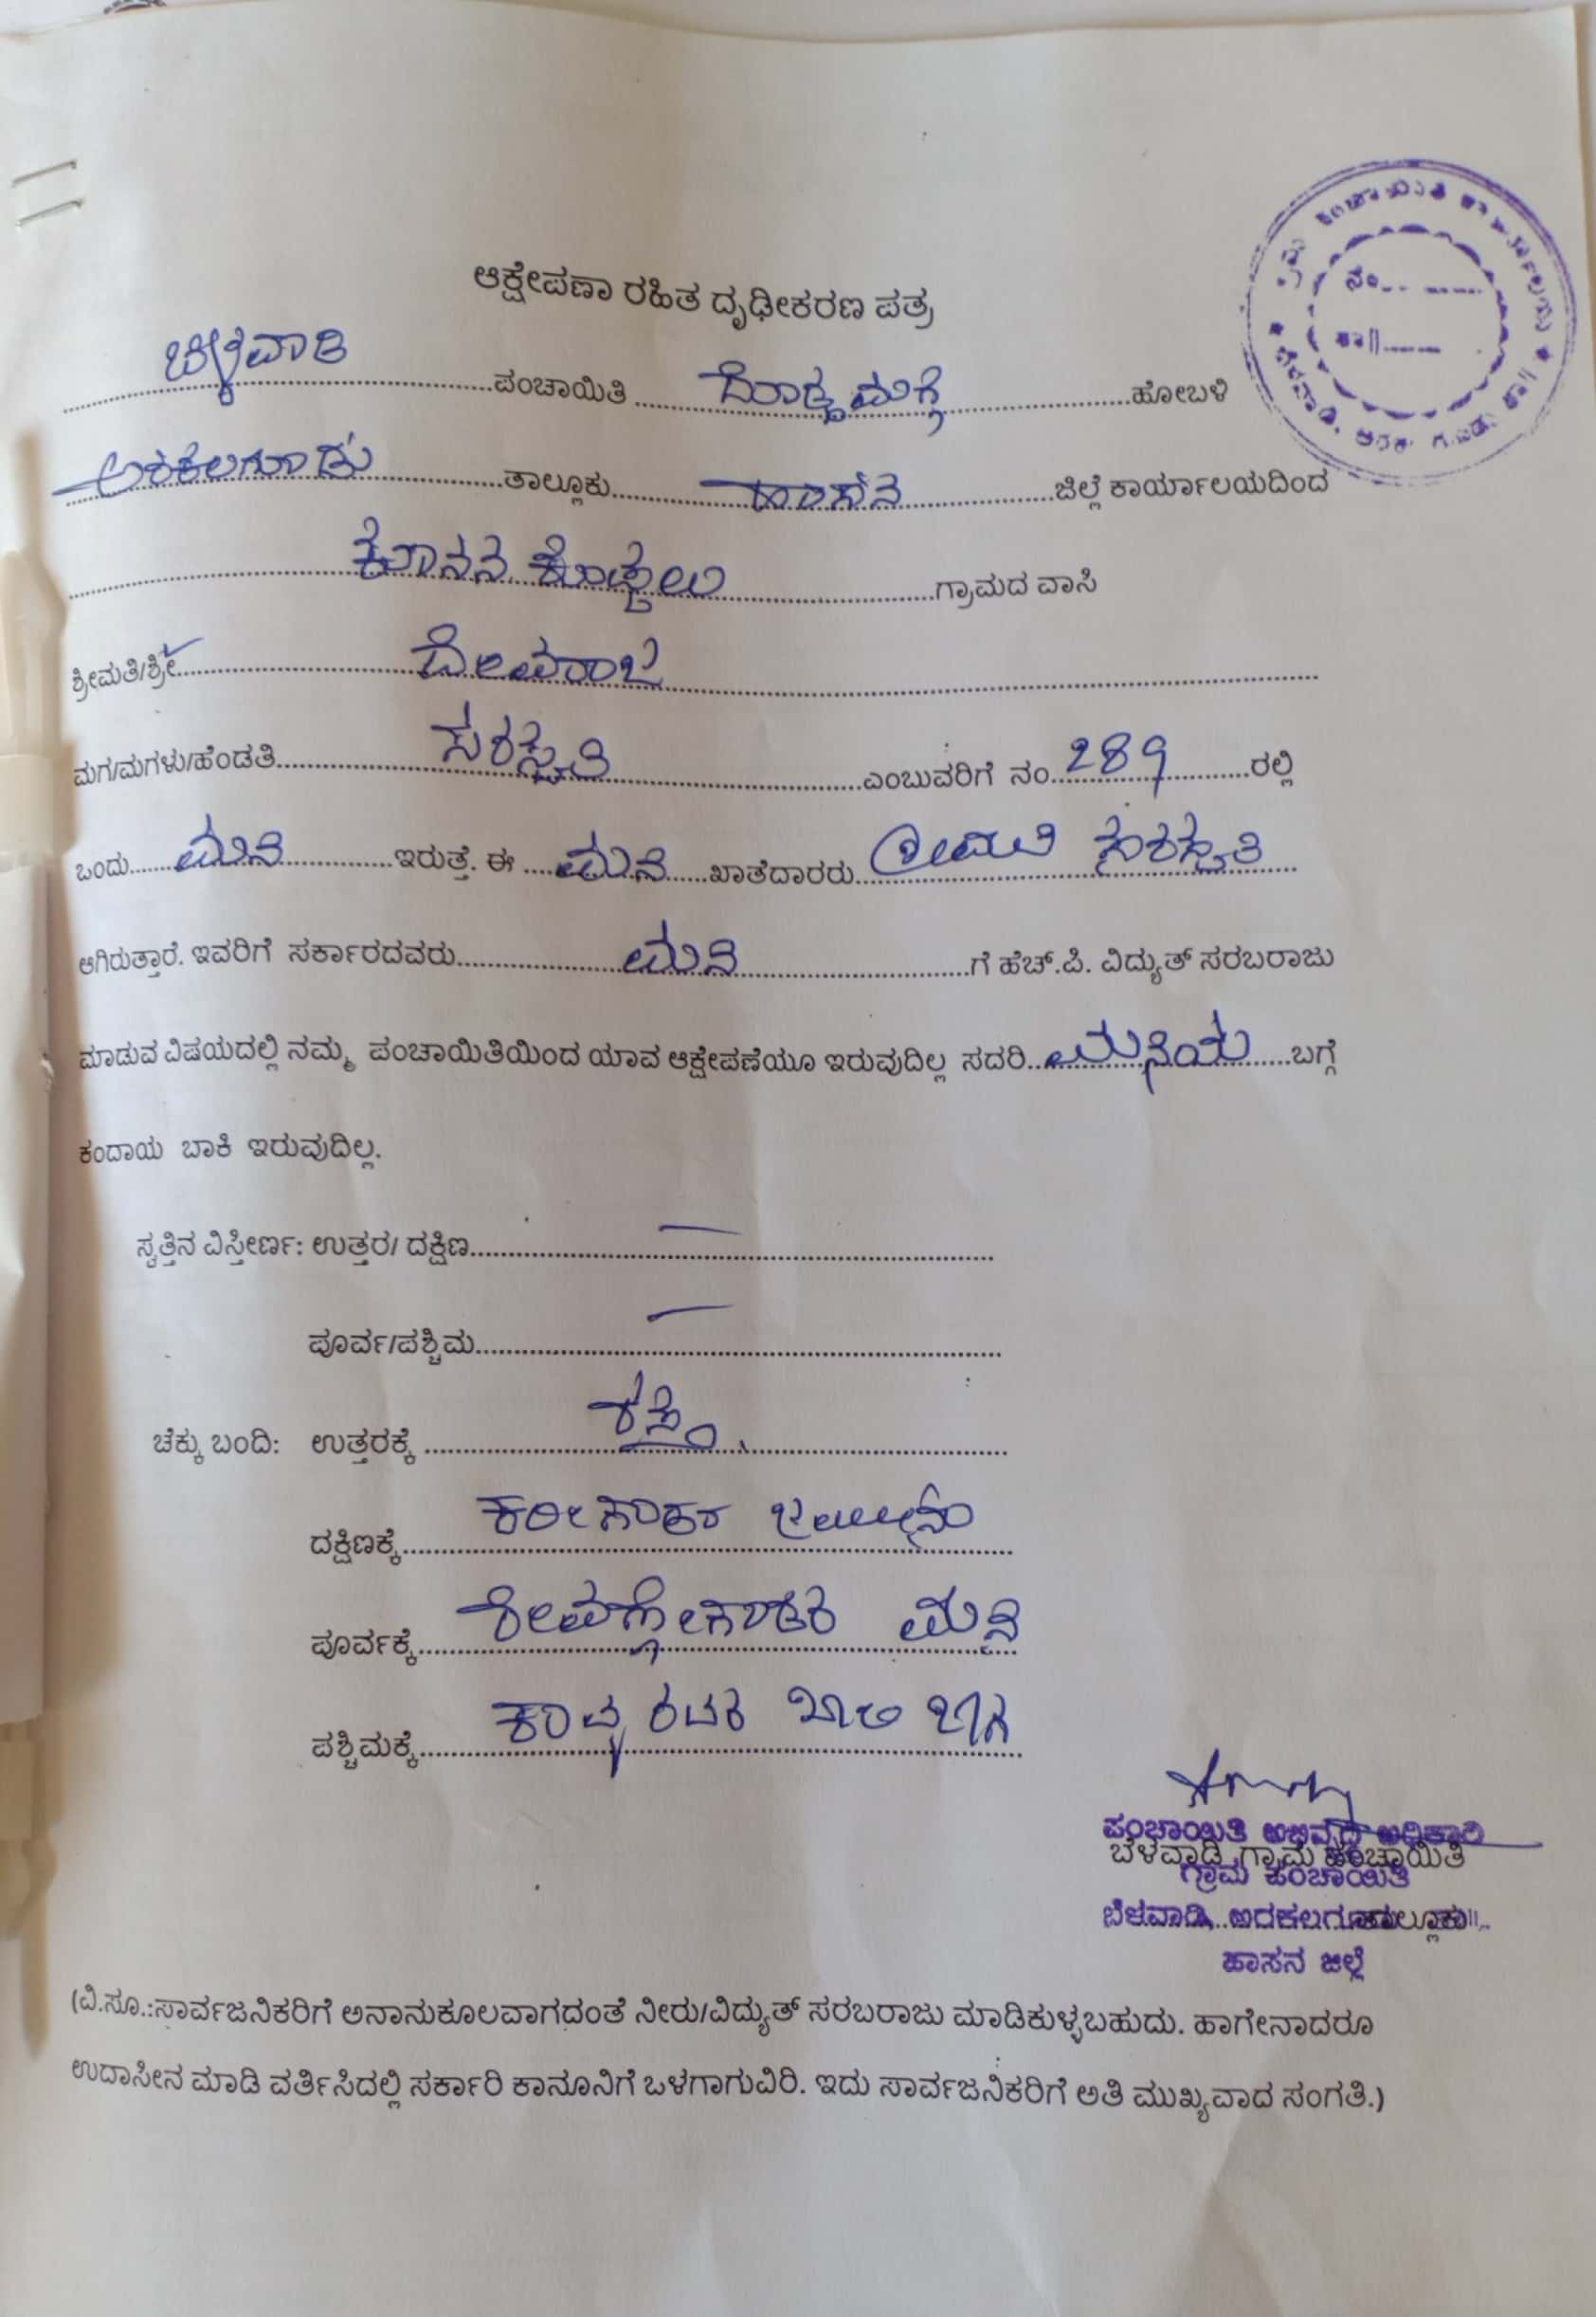 ಆಕ್ಷೇಪಣಾ ರಹಿತ ದೃಢೀಕರಣ ಪತ್ರ
ಬೆಳವಾಡಿ ಪಂಚಾಯಿತಿ ದೊಡ್ಡಮಗ್ಗೆ ಹೋಬಳಿ
ಅರಕಲಗೂಡು ತಾಲ್ಲೂಕು ಹಾಸನ ಜಿಲ್ಲೆ ಕಾರ್ಯಾಲಯದಿಂದ
ಗ್ರಾಮದ ವಾಸಿ
ಶ್ರೀಮತಿ/ಶ್ರೀ ದೇವರಾಜ
ಮಗ/ಮಗಳು/ಹೆಂಡತಿ ಸರಸ್ವತಿ ಎಂಬುವರಿಗೆ ನಂ. 289 ರಲ್ಲಿ
ಒಂದು ಮನೆ ಇರುತ್ತೆ. ಈ ಮನೆ ಖಾತೆದಾರರು ಶ್ರೀಮತಿ ಸರಸ್ವತಿ
ಆಗಿರುತ್ತಾರೆ. ಇವರಿಗೆ ಸರ್ಕಾರದವರು ಮನೆ ಗೆ ಹೆಚ್.ಪಿ. ವಿದ್ಯುತ್ ಸರಬರಾಜು
ಮಾಡುವ ವಿಷಯದಲ್ಲಿ ನಮ್ಮ ಪಂಚಾಯಿತಿಯಿಂದ ಯಾವ ಆಕ್ಷೇಪಣೆಯೂ ಇರುವುದಿಲ್ಲ ಸದರಿ ಮನೆಯ ಬಗ್ಗೆ
ಕಂದಾಯ ಬಾಕಿ ಇರುವುದಿಲ್ಲ.
ಸ್ವತ್ತಿನ ವಿಸ್ತೀರ್ಣ: ಉತ್ತರ/ ದಕ್ಷಿಣ —
ಪೂರ್ವ/ಪಶ್ಚಿಮ —
ಚೆಕ್ಕು ಬಂದಿ: ಉತ್ತರಕ್ಕೆ ರಸ್ತೆ
ದಕ್ಷಿಣಕ್ಕೆ ಜಮೀನು
ಪೂರ್ವಕ್ಕೆ ಮನೆ
ಪಶ್ಚಿಮಕ್ಕೆ ಖಾಲಿ ಜಾಗ
ಪಂಚಾಯಿತಿ ಅಭಿವೃದ್ಧಿ ಅಧಿಕಾರಿ
ಬೆಳವಾಡಿ ಗ್ರಾಮ ಪಂಚಾಯಿತಿ
ಗ್ರಾಮ ಪಂಚಾಯಿತಿ
ಬೆಳವಾಡಿ, ಅರಕಲಗೂಡು ತಾಲ್ಲೂಕು
ಹಾಸನ ಜಿಲ್ಲೆ
(ವಿ.ಸೂ.:ಸಾರ್ವಜನಿಕರಿಗೆ ಅನಾನುಕೂಲವಾಗದಂತೆ ನೀರು/ವಿದ್ಯುತ್ ಸರಬರಾಜು ಮಾಡಿಕುಳ್ಳಬಹುದು. ಹಾಗೇನಾದರೂ
ಉದಾಸೀನ ಮಾಡಿ ವರ್ತಿಸಿದಲ್ಲಿ ಸರ್ಕಾರಿ ಕಾನೂನಿಗೆ ಒಳಗಾಗುವಿರಿ. ಇದು ಸಾರ್ವಜನಿಕರಿಗೆ ಅತಿ ಮುಖ್ಯವಾದ ಸಂಗತಿ.)